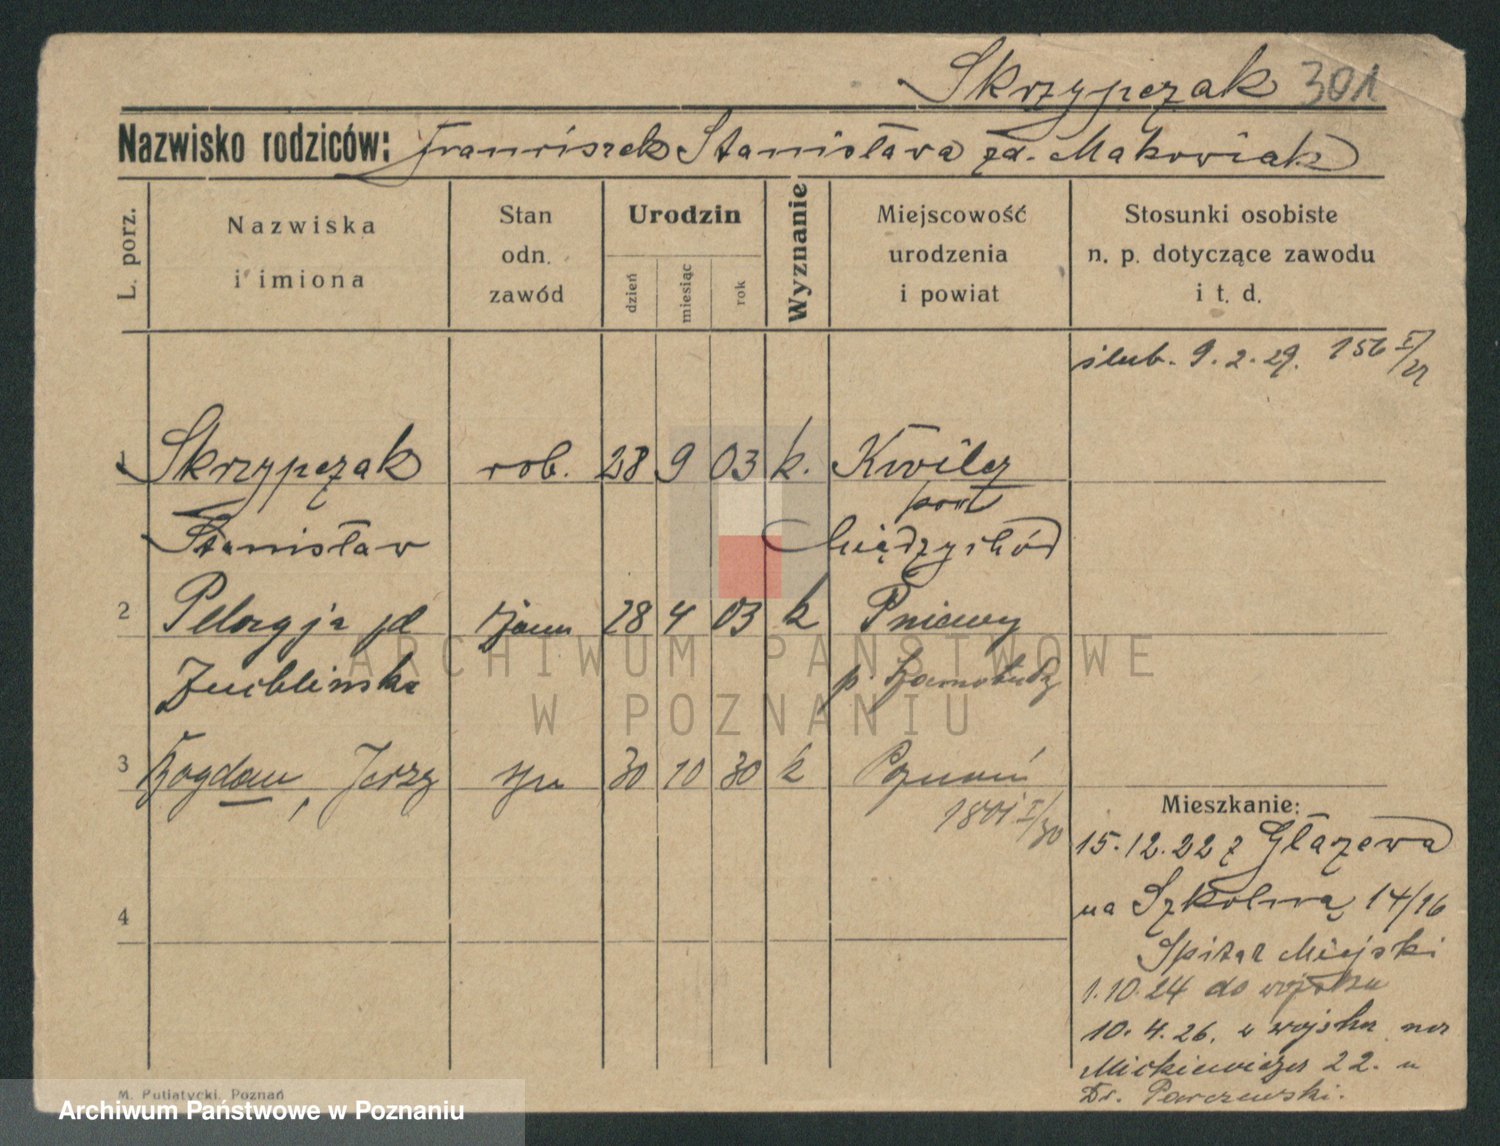 Skrzypczak 301
Nazwisko rodziców: Franciszek Stanisława zd. Makowiak
L. porz.
Nazwiska
i imiona
Stan
odn.
zawód
Urodzin
dzień
miesiąc
rok
Wyznanie
Miejscowość
urodzenia
i powiat
Stosunki osobiste
n. p. dotyczące zawodu
i t. d.
ślub. 9. 2. 29. 156 I/29
1 Skrzypczak rob. 28 9 03 k. Kwilcz
pow
Stanisław Międzychód
2 Pelagja zd żona 28 4 03 k Pniewy
p. Szamotuły
3 Bogdan, Jerzy syn 30 10 30 k Poznań
1801 I/30
4
Mieszkanie:
15. 12. 22 z Głazewa
na Szkolną 14/16
Szpital Miejski
1.10.24 do wojska
10. 4. 26. z wojska na
Mickiewicza 22. u
Dr. Parczewski.
M. Putiatycki, Poznań
ARCHIWUM PAŃSTWOWE
W POZNANIU
Archiwum Państwowe w Poznaniu